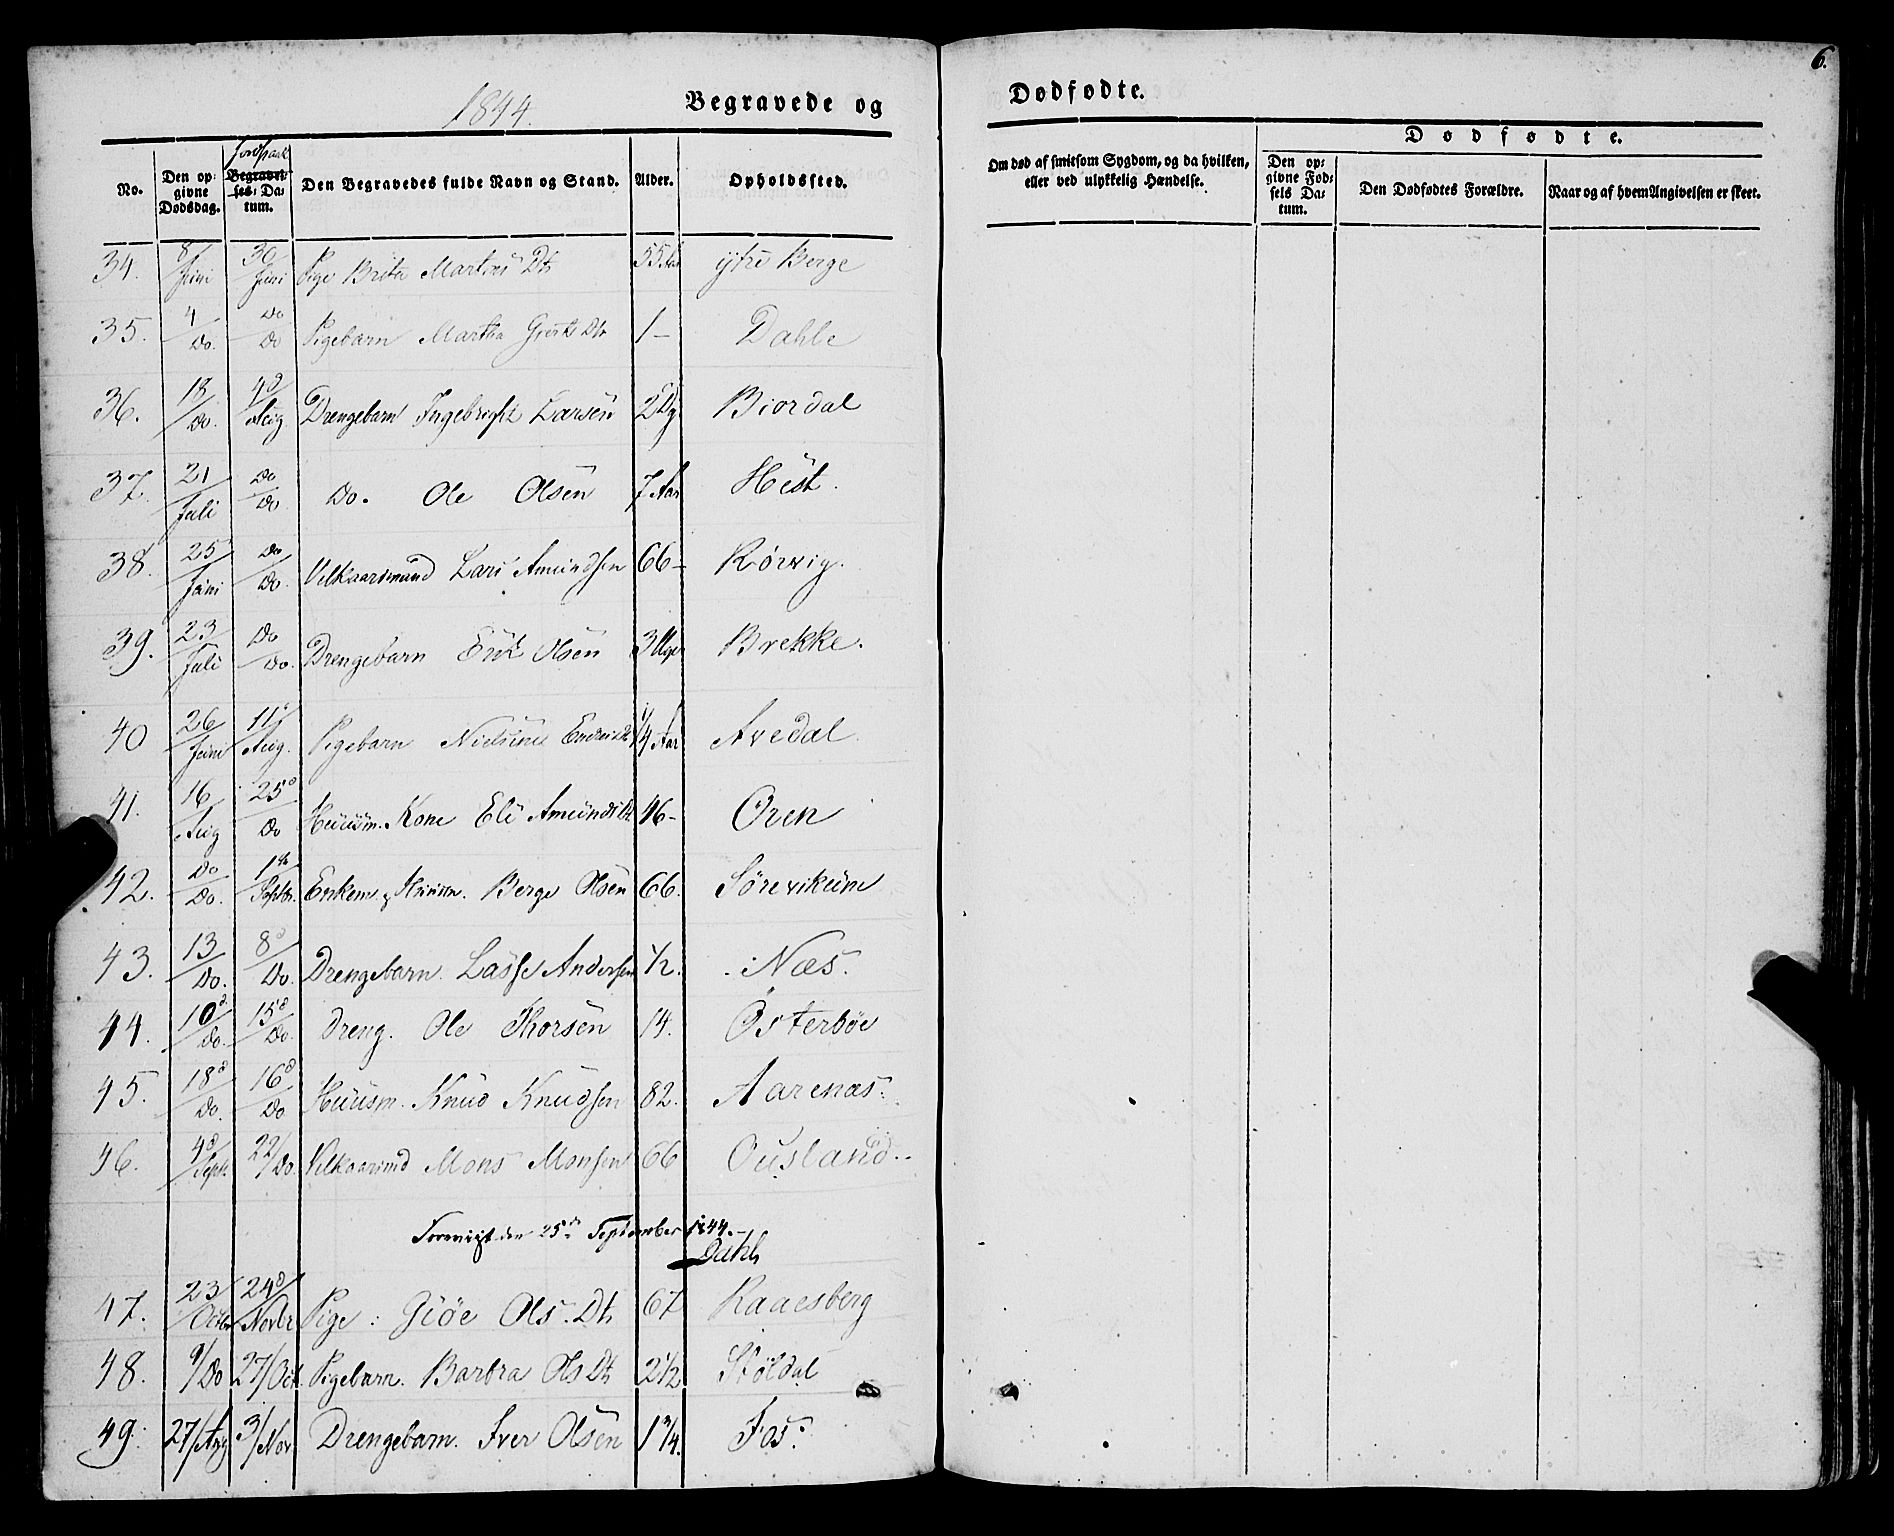 6.
1844.
Begravede og
Dødfødte.
No.
Den opgivne Dødsdag.
Jordpaak
Begravelses-Datum.
Den Begravedes fulde Navn og Stand.
Alder.
Opholdssted.
Om død af smitsom Sygdom, og da hvilken, eller ved ulykkelig Hændelse.
Dødfødte.
Den opgivne Fødsels Datum.
Den Dødfødtes Forældre.
Naar og af hvem Angivelsen er skeet.
34. 8/Juni 30/Juni Pige Brita Martens Dtr 55 Aar ytre Berge
35. 4/Do. Do/Do Pigebarn Martha Dtr 1 – Dahle
36. 18/Do. 4d/Aug Drengebarn Ingebrigt Larsen 2 Dg Biordal
37. 21/Juli Do/Do Do. Ole Olsen 7 Aar Hest.
38. 25/Juni Do/Do. Vilkaarsmand Lars Amundsen 66 – Rørvig.
39. 23/Juli Do/Do. Drengebarn Erik Olsen 3 Uger Brekke.
40 26/Juni 11/Aug. Pigebarn Nielsine 1/4 Aar Avedal
41. 16/Aug 25d/Do Huusm. Kone Eli Amunds Dt 46 – Oren
42. Do/Do. 1ste/Septbr. Enkem. & Huusm. Berge Olsen 66. Sørevikum
43. 13/Do. 8d/Do. Drengebarn. Lasse Andersen 1/2. Næs.
44. 10d/Do. 15d/Do. Dreng. Ole Thorsen 14. Østerbøe
45. 18d/Do. 16d/Do Huusm. Knud Knudsen 82. Aarenæs.
46. 4d/Sept. 22/Do. Vilkaarsmd Mons Monsen 66 Ousland..
Foreviist den 25de September 1844. –
Dahl
47. 23/Octbr 24d/Novbr Pige: Giøe Ols. Dtr 67 Raaesberg
48. 9/Do 27/Oct. Pigebarn. Barbra Ols Dtr 2 1/2 Støldal
49. 27/Aug 3/Nov. Drengebarn. Iver Olsen 1 3/4. Fos.